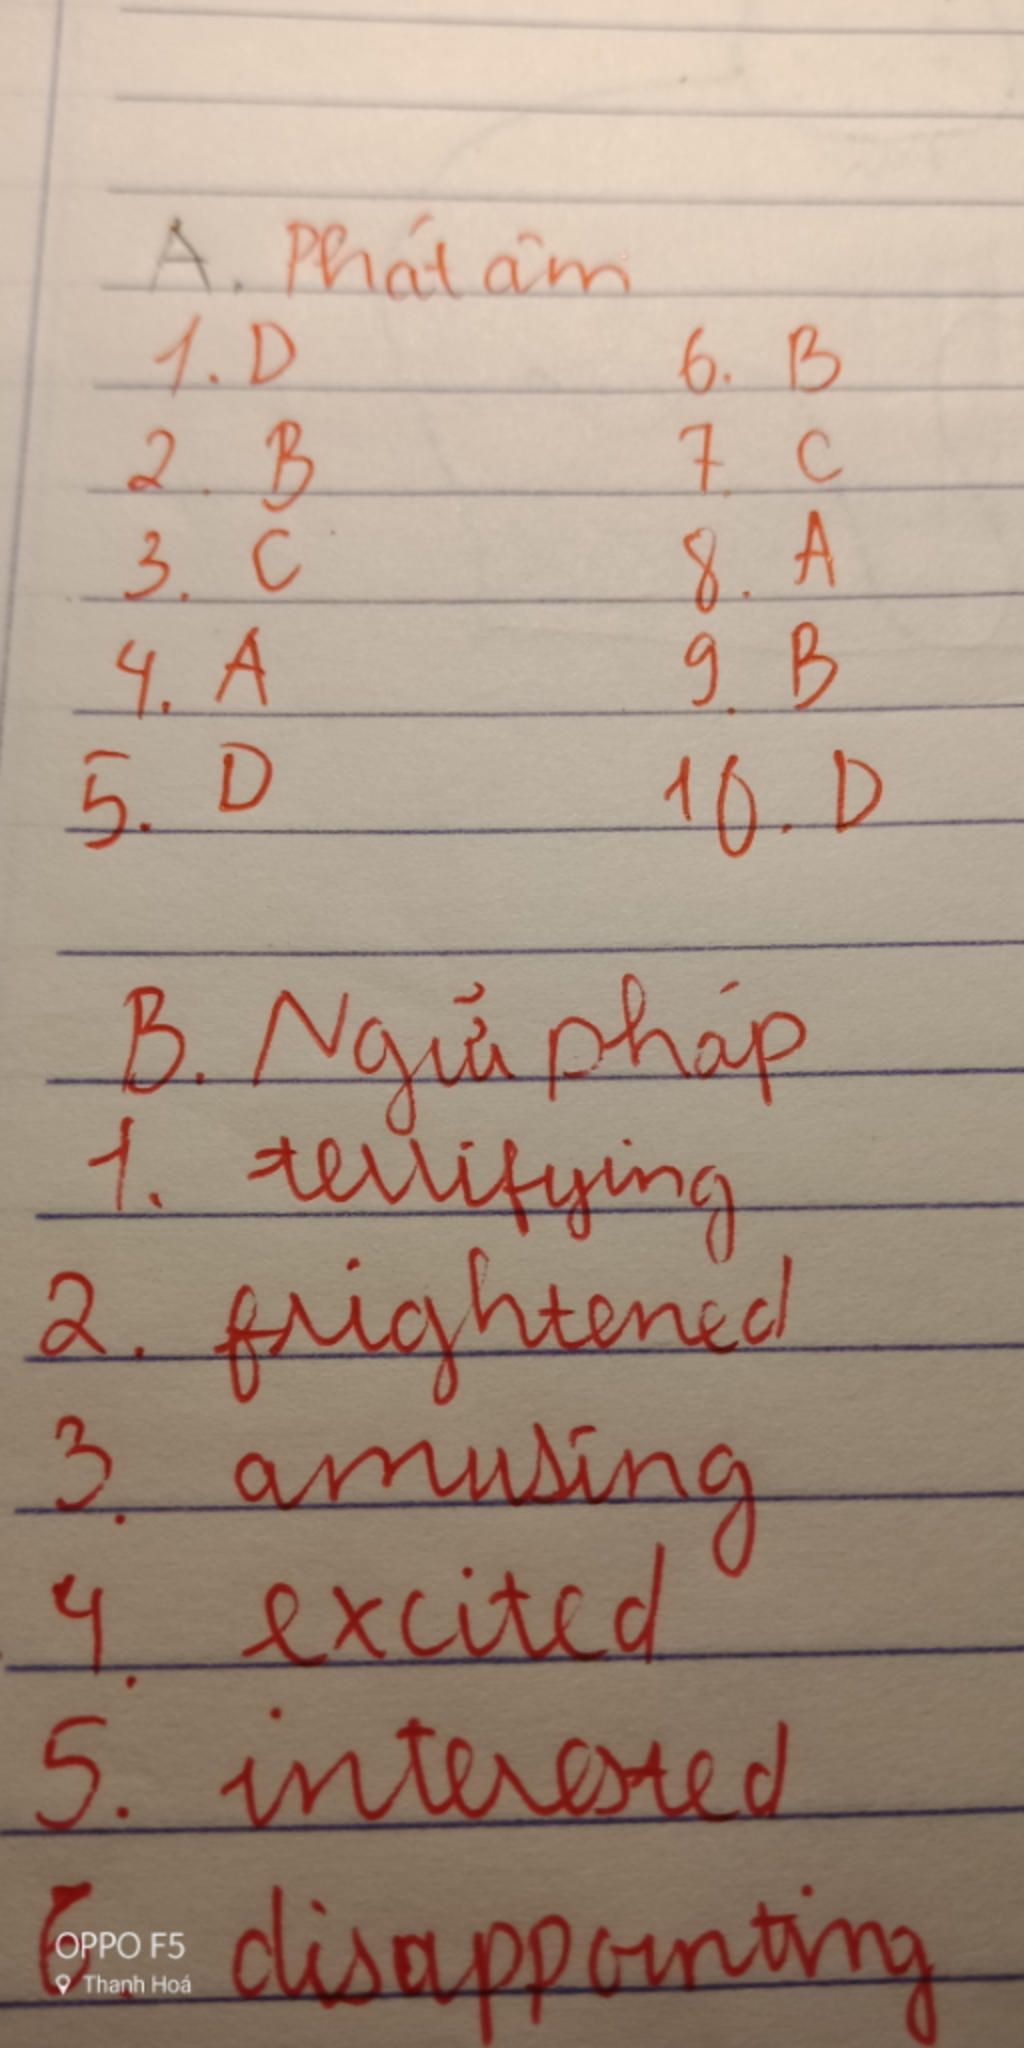 A. Phát âm
1. D
6. B
2. B
7. C
3. C
8. A
4. A
9. B
5. D
10. D
B. Ngữ pháp
1. terrifying
2. frightened
3. amusing
4. excited
5. interested
6. disappointing
OPPO F5
Thanh Hoá